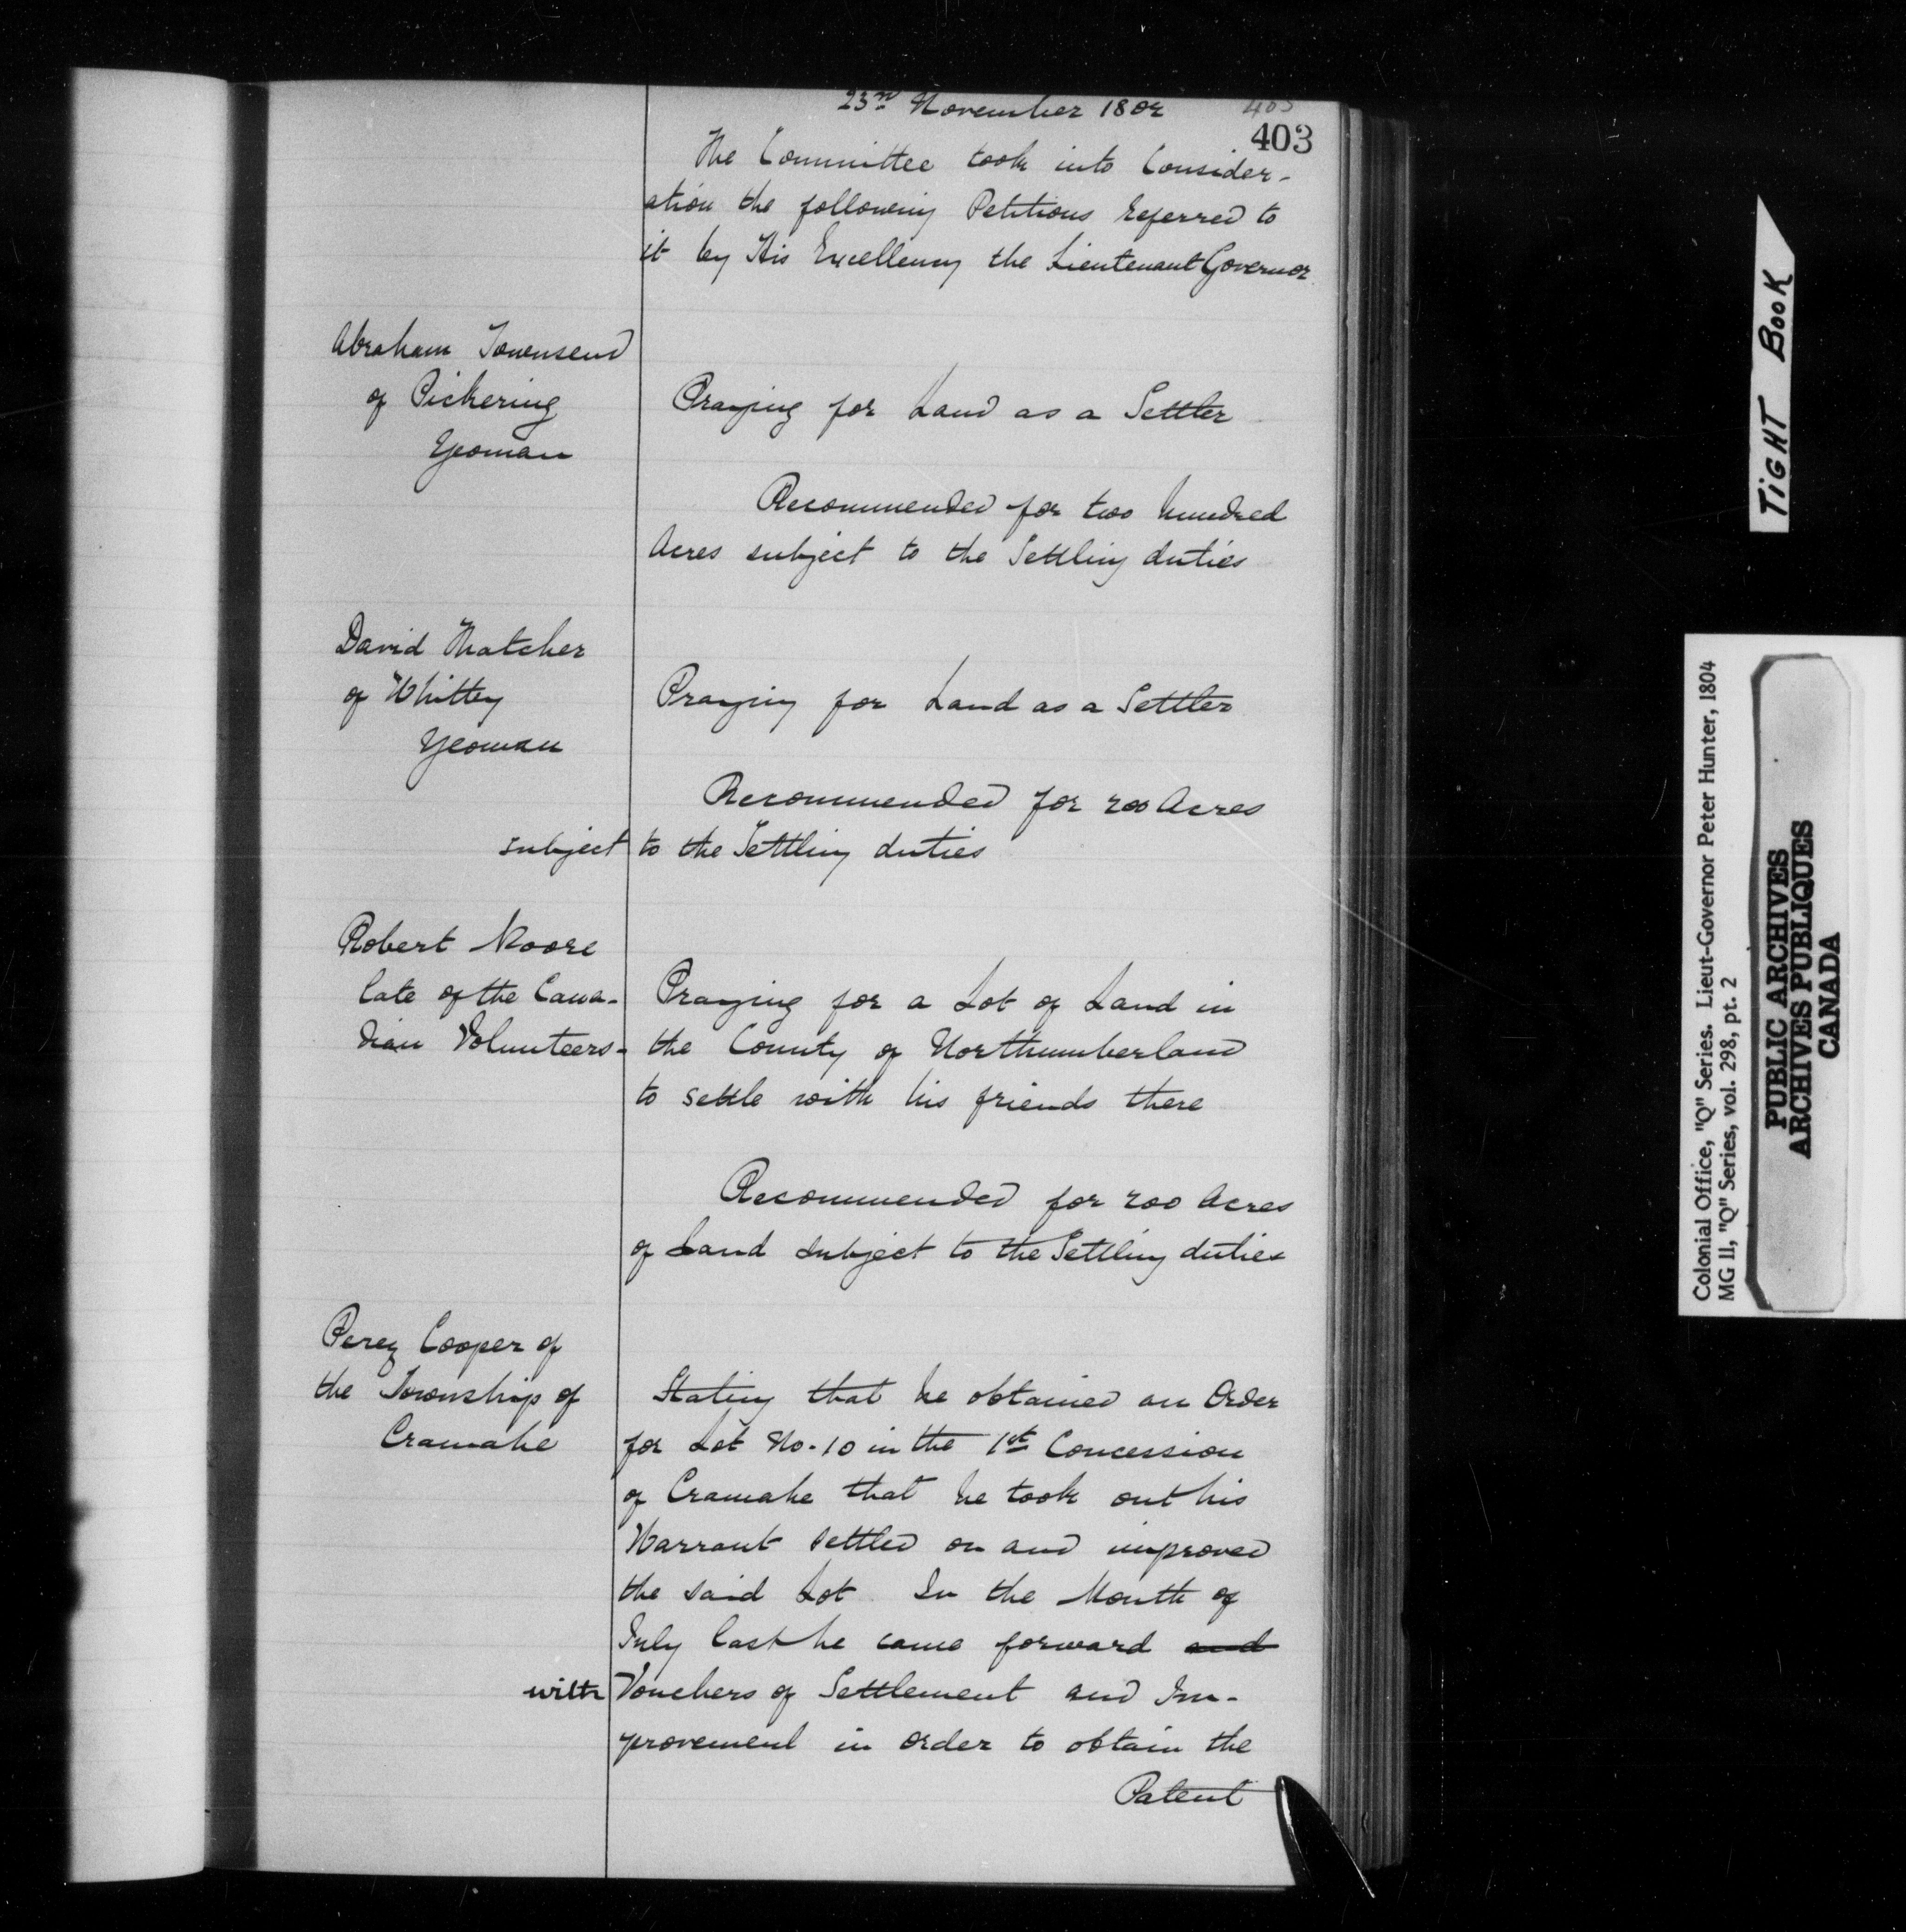 23rd November 1802
403
403
The Committee took into Consider-
ation the following Petitions referred to
it by His Excellency the Lieutenant Governor
Abraham Townsend
of Pickering
Yeoman
Praying for Land as a Settler
Recommended for two hundred
Acres subject to the Settling duties
David Thatcher
of Whitby
Yeoman
Praying for Land as a Settler
Recommended for 200 Acres
subject to the Settling duties
Robert Moore
late of the Cana-
dian Volunteers-
Praying for a Lot of Land in
the County of Northumberland
to settle with his friends there
Recommended for 200 Acres
of Land subject to the Settling duties
Perez Cooper of
the Township of
Cramahe
Stating that he obtained an Order
for Lot No. 10 in the 1st Concession
of Cramahe that he took out his
Warrant settled on and improved
the said Lot In the Month of
July last he came forward and
with Vouchers of Settlement and Im-
provement in order to obtain the
Patent
TIGHT BOOK
Colonial Office, "Q" Series. Lieut-Governor Peter Hunter, 1804
MG 11, "Q" Series, vol. 298, pt. 2
PUBLIC ARCHIVES
ARCHIVES PUBLIQUES
CANADA